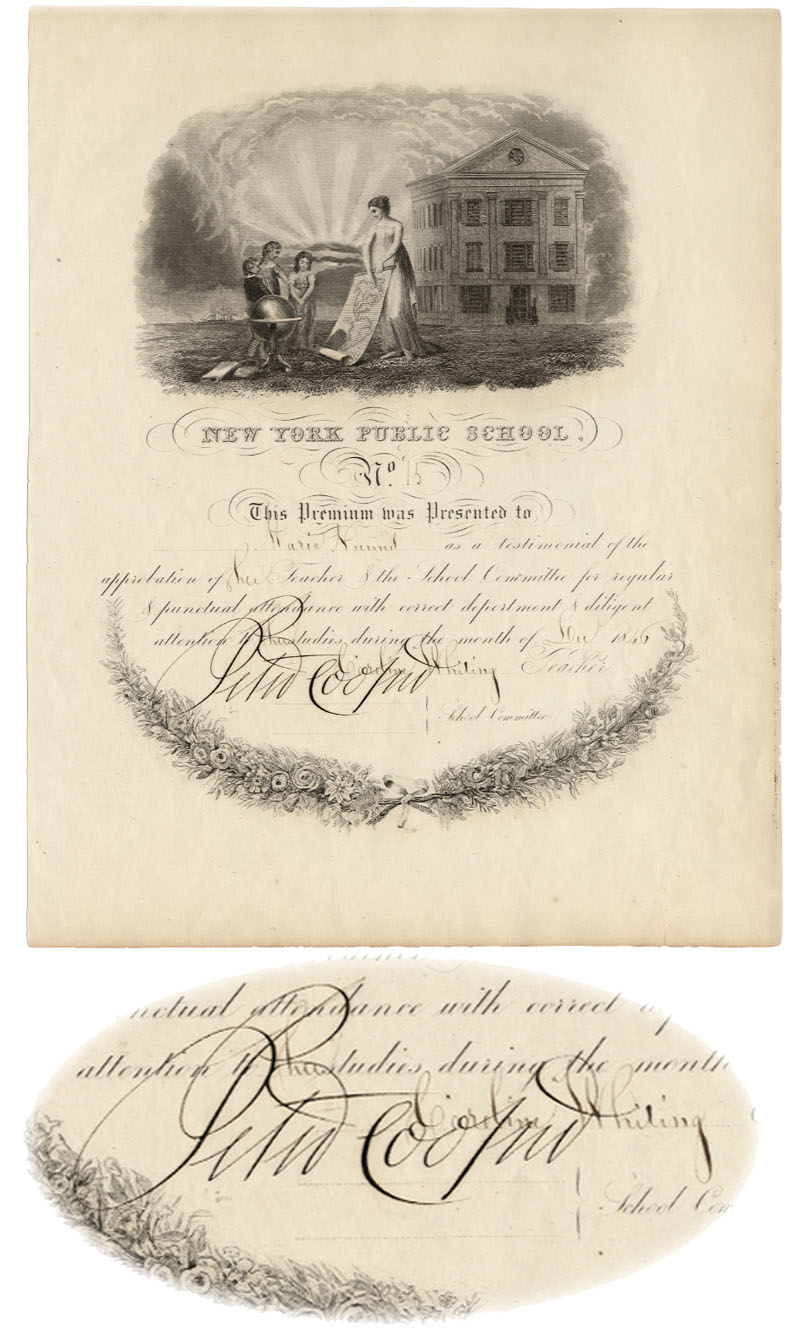 NEW YORK PUBLIC SCHOOL,
No. 15
This Premium was Presented to
Maria as a testimonial of the
approbation of her Teacher & the School Committee for regular
& punctual attendance with correct deportment & diligent
attention to her studies during the month of Dec 1846
Caroline Whiting Teacher
Peter Cooper
School Committee
nctual attendance with correct
attention to her studies during the month
Caroline Whiting
Peter Cooper
School Com